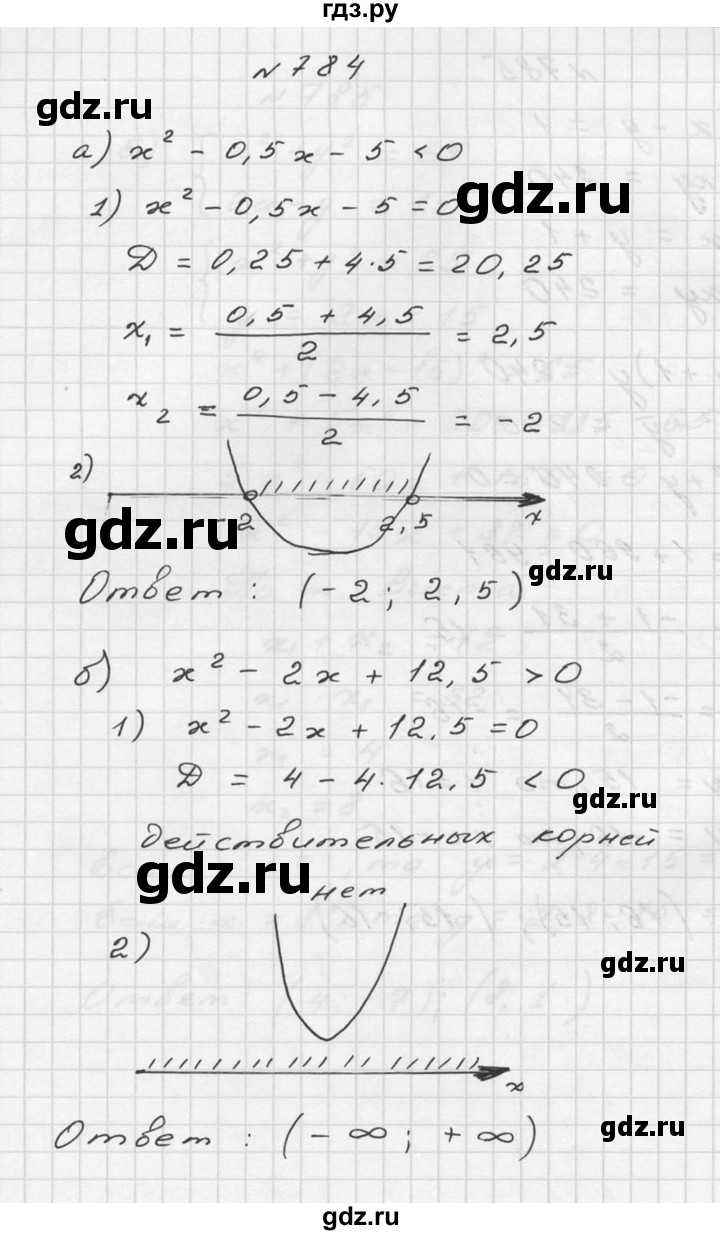 гдз.ру
№784
gdz.ru
а) x² - 0,5x - 5 < 0
1) x² - 0,5x - 5 = 0
gdz.ru
D = 0,25 + 4·5 = 20,25
x₁ = (0,5 + 4,5)/2 = 2,5
x₂ = (0,5 - 4,5)/2 = -2
2)
-2 2,5 x
gdz.ru
gdz.ru
Ответ : (-2 ; 2,5)
б) x² - 2x + 12,5 > 0
1) x² - 2x + 12,5 = 0
D = 4 - 4·12,5 < 0
gdz.ru
действительных корней
нет
gdz.ru
2)
gdz.ru
x
Ответ : (-∞ ; +∞)
gdz.ru
gdz.ru